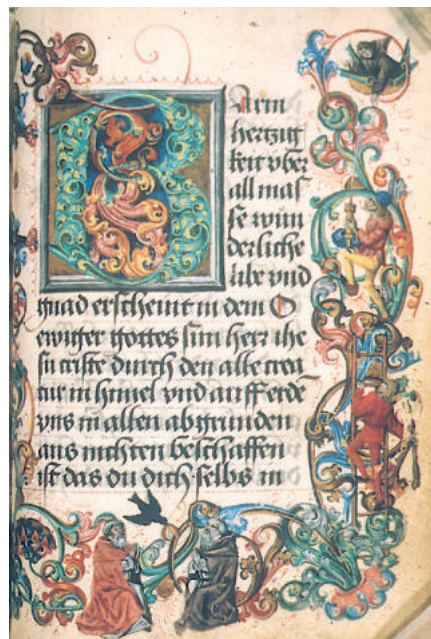 Barm
hertzig
keit vber
all mas
se wun
derliche
libe vnd
gnad erscheint in dem O
ewiger gottes sun herr ihe
su criste durch den alle crea
tur in himel vnd auff erdē
vns in allen abgrunden
aus nichten beschaffen
ist das du dich selbs in